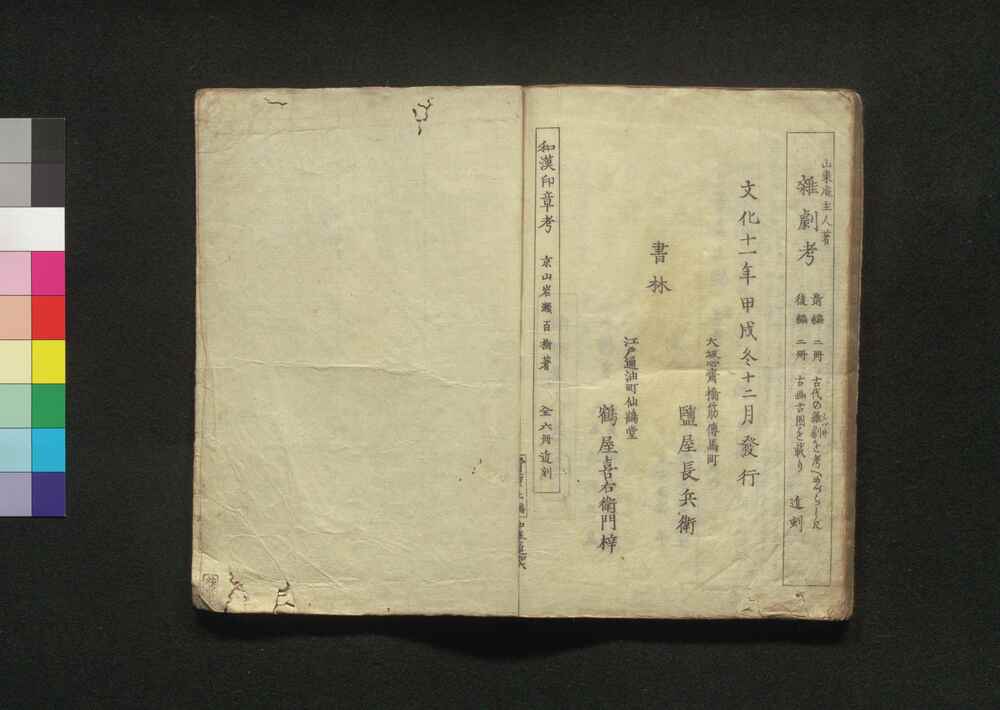 山東庵主人著
雑劇考
前編 二冊 古代の雑劇を考へ
後編 二冊 古画古図を載り 近刻
文化十一年甲戌冬十二月發行
書林
大坂心齋橋筋傳馬町
鹽屋長兵衛
江戸通油町仙鶴堂
鶴屋喜右衛門梓
和漢印章考 京山岩瀬百樹著 全六冊近刻